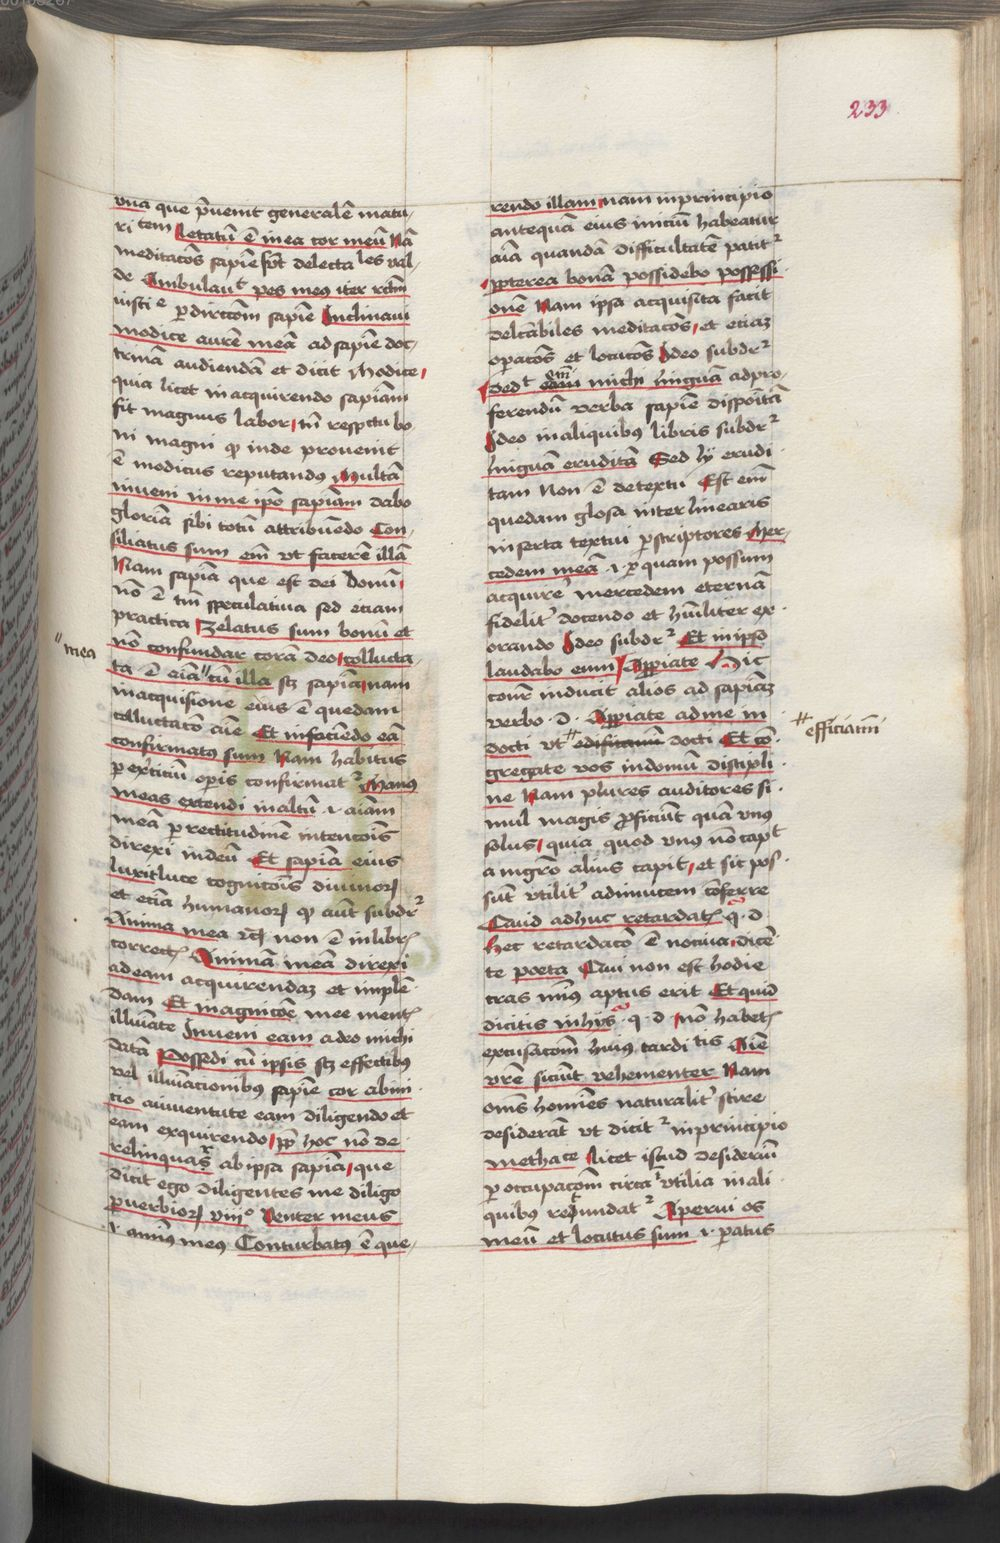 233
vna que p̄uenit generalē matu-
ri tem Letatū ē in ea cor meū Nā
meditacōs sapiē sūt delecta les val-
de Ambulauᵗ pes meus iter rctm̄
iusti e p dirctōm sapiē Inclinaui
modice aurē meā ad sapiē doc-
trinā audiendā et dicit Modice
quia licet in acquirendo sapiām
fit magnus labor, tn̄ respctu bo
ni magni qd inde prouenit
ē modicus reputandus Multā
inueni in me ipo sapiām dabo
gloriā sibi totū attribuēdo Con-
siliatus sum em̄ vt facerē illā
Nam sapiā que est dei donū
nō ē tm̄ speculatiua sed etiam
practica zelatus sum bonū et
nō confundar corā deo, collucta-
" mea
ta ē aīa " cū illa scz sapiā nam
in acquisicione eius ē quedam
colluctatō aīe Et in faciēdo eā
confirmatus sum Nam habitus
p exˀcitiū opis confirmatᵣ Manus
meas extendi in altū .i. aīam
meā p rectitudinē intencōis
direxi in deū Et sapiā eius
luxit luce cognicōis diuinorꝫ
et etiā humanorꝫ qd aūt subdrᵣ
Anima mea rcꝫ non ē in libr̄
correctꝭ Animā meā direxi
ad eam acquirendaꝫ et implē-
dam Et in agnicōe mee mentꝭ
illuīate Inueni eam a deo michi
datā Possedi cū ipsis scꝫ effectibus
vel illuīacionibus sapiē cor ab ini-
cio a iuuentute eam diligendo et
eam exquirendo, ppˀ hoc nō de-
relinquar ab ipsa sapiā, que
dicit ego diligentes me diligo
puerbiorꝫ viijᵒ Venter meus
.i. anim̄us meus Conturbatus ē que-
rendo illam nam in principio
antequā eius iniciū habeatur
aīa quandā difficultatē patitᵣ
ppterea bonā possidebo possessi-
onē Nam ipsa acquisita facit
delcābiles meditacōs, et etiaꝫ
opatōs et locutōs Ideo subdrᵣ
Dedᵗ em̄ michi linguā ad pro-
ferendū verba sapiē dispoītā
Ideo in aliquibus libris subdrᵣ
linguā eruditā Sed ly erudi-
tam Non ē de textu Est em̄
quedam glosa interlinearis
inserta textui p scriptores Mer-
cedem meā .i. p quam possum
acquirēˀ mercedem eternā
fidelitˀ docendo et hūīliter ex-
orando Ideo subdrᵣ Et in ipso
laudabo eum Appiate Hic
conr̄ inducit alios ad sapiaꝫ
verbo .d. Appiate ad me in
docti vt # edificamini docti Et cō-
# efficiamī
gregate vos in domū discipli-
ne Nam plures auditores si-
mul magis pficiūt quā vnus
solus, quia quod vnus nō capᵗ
a mgrō alius capit, et sic pos-
sūt vtilitˀ adinuicem cōferre
Quid adhuc retardatꝭ q. d
hec retardacō ē nociua dicē-
te poeta Qui non est hodie
cras min̄us aptus erit Et quid
dicitis in hijs .q. d nō habetꝭ
excusacōm huius tardi tis Aīe
vrē siciūt vehementer Nam
om̄s homīes naturalitˀ scire
desiderāt vt dicitᵣ in principio
methace licet istud desideriū
p occupacōm circa vtilia in ali-
quibus retundatᵣ Aperui os
meū et locutus sum .i. patus